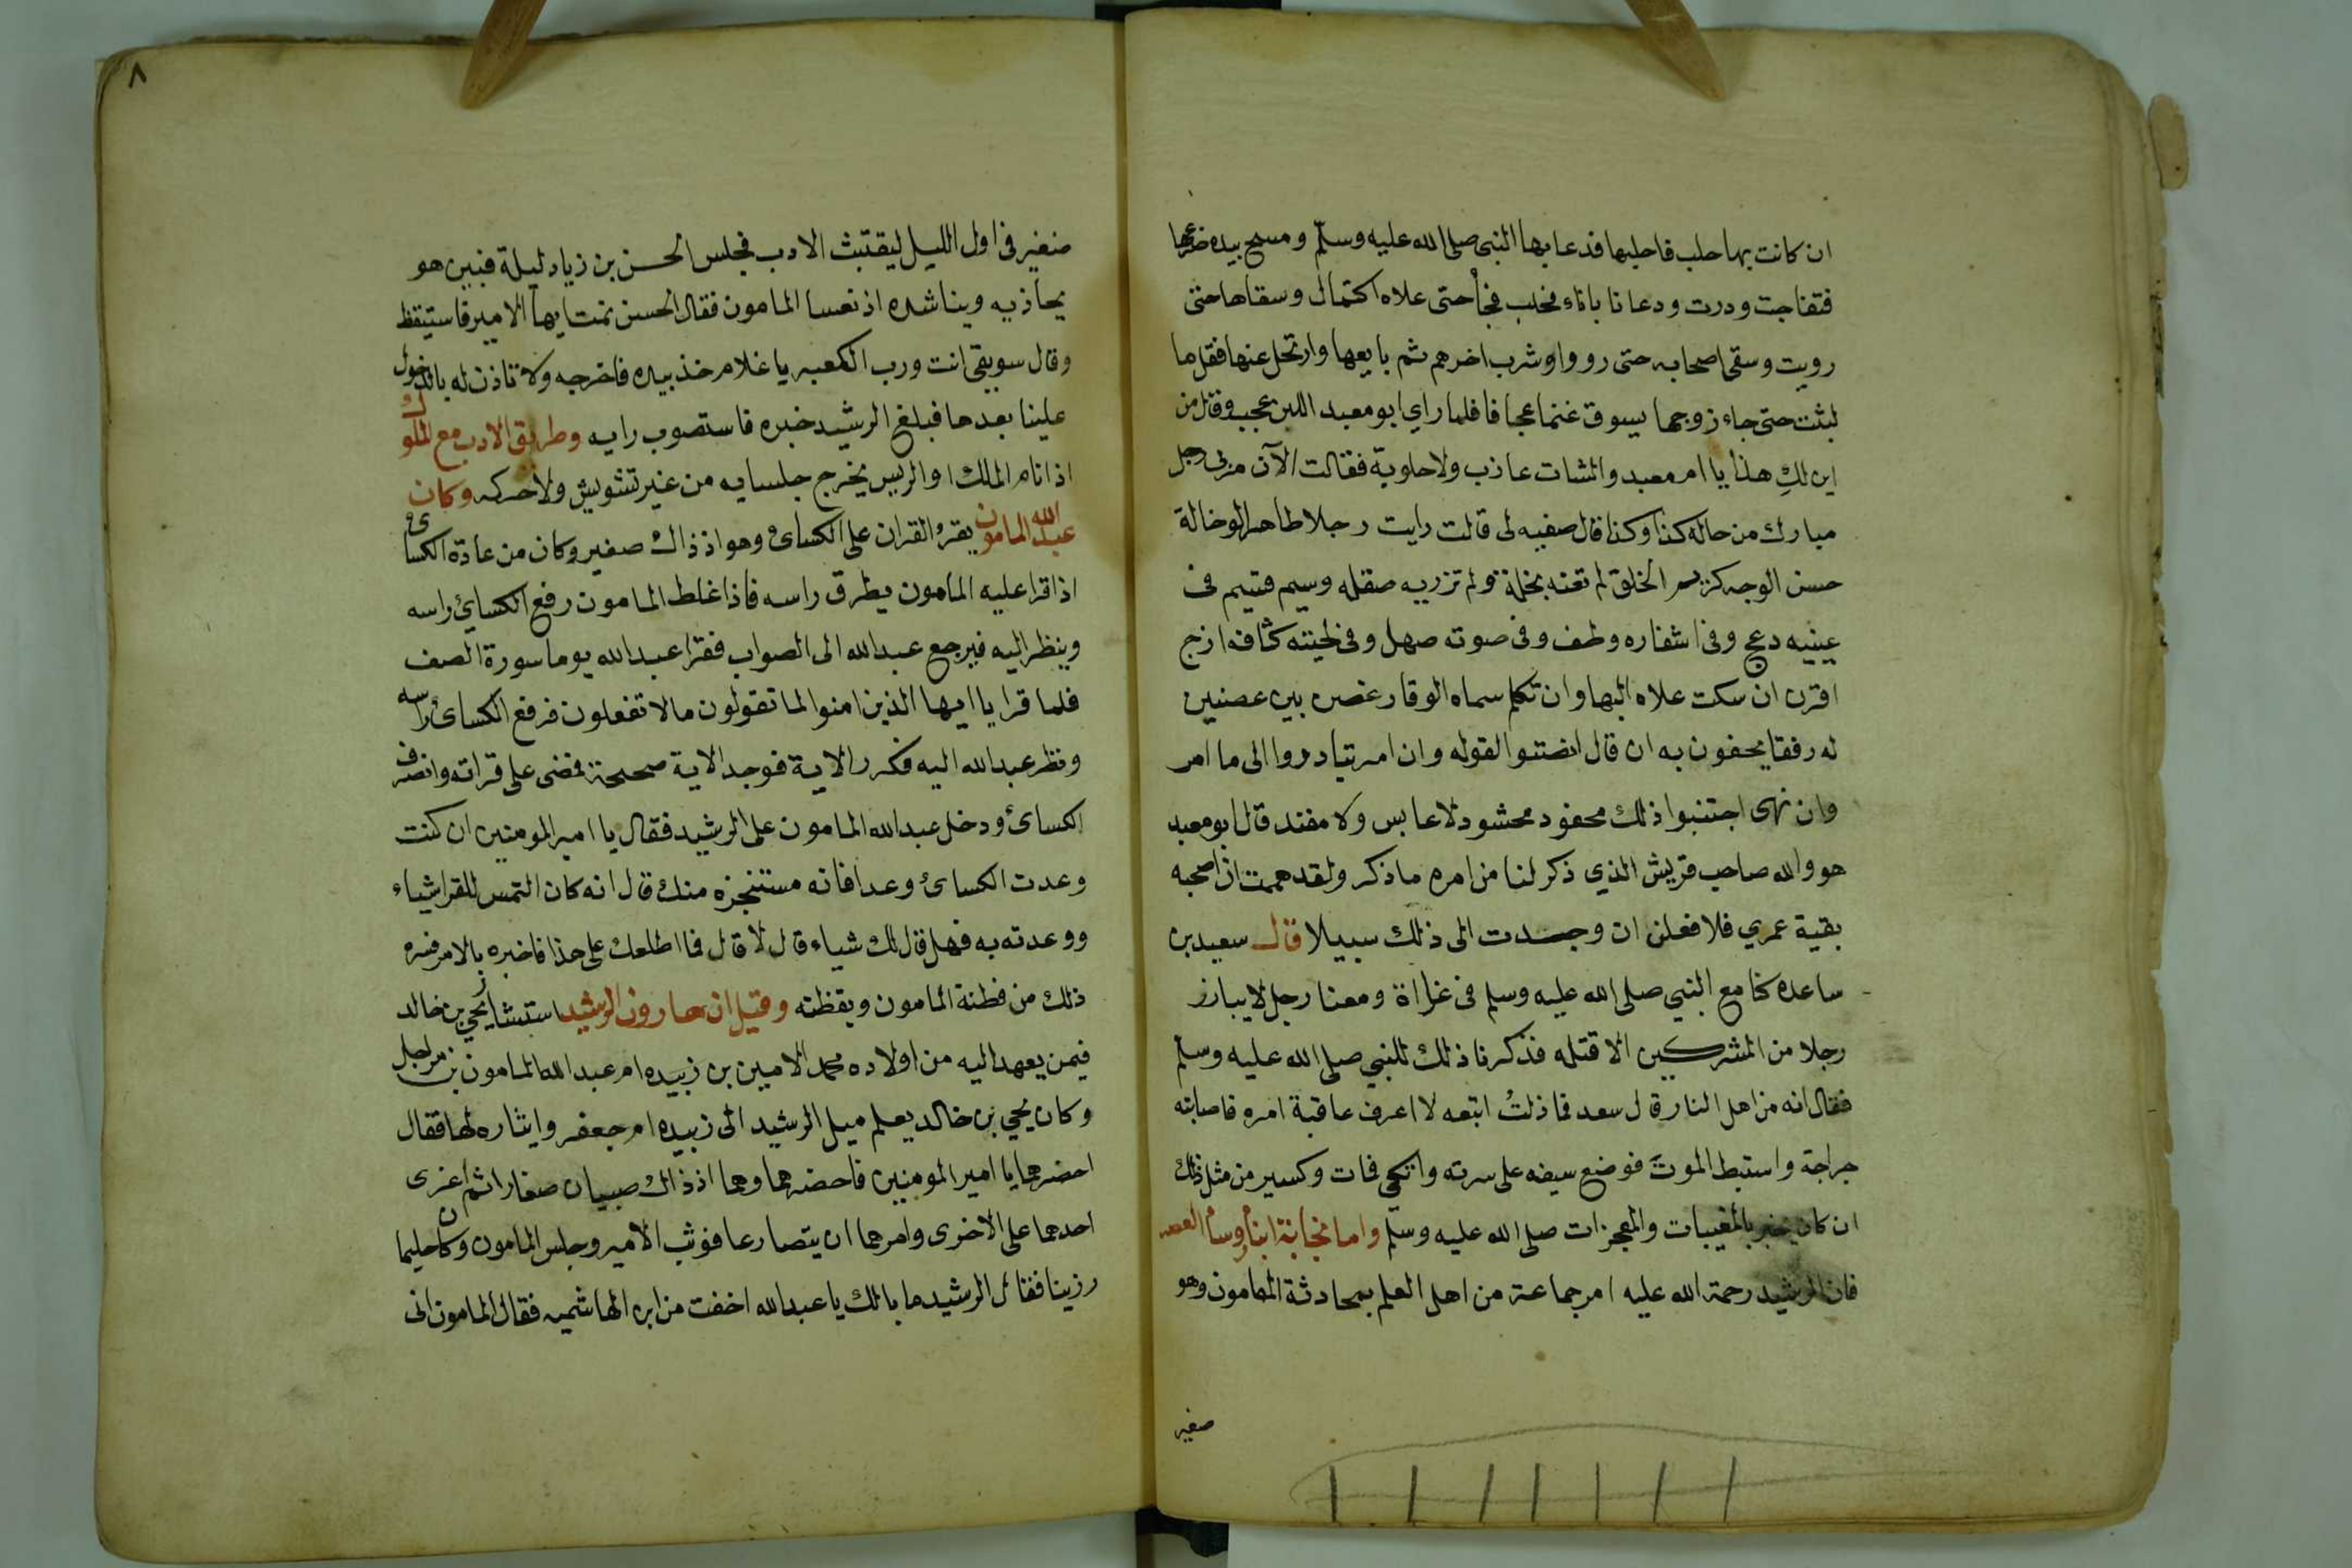 ان كانت بها حلب فاحلبها فدعا بها النبى صلى الله عليه وسلم ومسح بيده ضرعها
فتفاجت ودرت ودعا نا باناء فحلب فجأ حتى علاه اكتمال وسقاها حتى
رويت وسقى اصحابه حتى رووا وشرب اخرهم ثم بايعها وارتحل عنها فقل ما
لبثت حتى جاء زوجها يسوق غنما عجافا فلما راي ابو معبد اللبن عجب وقال من
اين لكِ هذا يا ام معبد والشات عاذب ولا حلوبة فقالت الآن مر بى رجل
مبارك من حاله كذا وكذا قال صفيه لى قالت رايت رجلا طاهر الوخالة
حسن الوجه كريم الخلق لم تعنه بخلة ولم تزريه صقله وسيم قسيم فى
عينيه دعج وفى اشفاره وطف وفى صوته صهل وفى لحيته كثافه ازج
اقرن ان سكت علاه البها وان تكلم سماه الوقار غصن بين غصنين
له رفقا يحفون به ان قال انصتوا لقوله وان امر تبادروا الى ما امر
وان نهى اجتنبوا ذلك محفود محشود لا عابس ولا مفند قال ابو معبد
هو والله صاحب قريش الذي ذكر لنا من امره ما ذكر ولقد هممت ان اصحبه
بقية عمري فلا فعلن ان وجدت الى ذلك سبيلا قال سعيد بن
ساعده كنا مع النبي صلى الله عليه وسلم فى غزاة ومعنا رجل لا يبارز
رجلا من المشركين الا قتله فذكرنا ذلك للنبي صلى الله عليه وسلم
فقال انه من اهل النار قال سعد فاذلتُ اتبعه لا اعرف عاقبة امره فاصابته
جراجة واستبط الموت فوضع سيفه على سرته واتكى فات وكسير من مثل ذلك
ان كان يخبر بالمغيبات والمعجزات صلى الله عليه وسلم واما نجابة ابنأ وسأ العصر
فان الرشيد رحمة الله عليه امر جماعة من اهل العلم بمحادثة المامون وهو
صغير
٨
صغير فى اول الليل ليقتبث الادب فجلس الحسن بن زياد ليلة فبين هو
يحاذيه ويناشده اذ نعسا المامون فقال الحسن نمت ايها الامير فاستيقظ
وقال سويقى انت ورب الكعبه يا غلام خذ بيده فاخرجه ولا تاذن له بالدخول
علينا بعدها فبلغ الرشيد خبره فاستصوب رايه وطريق الادب مع الملوك
اذا نام الملك او الريس يخرج جلسايه من غير تشويش ولا حركه وكان
عبد الله المامون يقرء القران على الكسائ وهو اذ ذاك صغير وكان من عادة الكسائ
اذا قرا عليه المامون يطرق راسه فاذا غلط المامون رفع الكسائ راسه
وينظر اليه فيرجع عبد الله الى الصواب فقرا عبد الله يوما سورة الصف
فلما قرا يا ايها الذين امنوا لما تقولون مالا تفعلون فرفع الكسائ راسه
ونظر عبد الله اليه فكرر الاية فوجد الاية صحيحة فمضى على قراته وانصرف
الكسائ ودخل عبد الله المامون على الرشيد فقال يا امير المومنين ان كنت
وعدت الكسائ وعدا فانه مستنجزه منك قال انه كان التمس للقرا شياء
ووعدته به فهل قال لك شياء قال لا قال فما اطلعك على هذا فاخبره بالامر فسره
ذلك من فطنة المامون ويقظته وقيل ان هارون الرشيد استشار يحيى بن خالد
فيمن يعهد اليه من اولاده محمد الامين بن زبيده ام عبد الله المامون بن مراجل
وكان يحيي بن خالد يعلم ميل الرشيد الى زبيده ام جعفر وايثاره لها فقال
احضرهما يا امير المومنين فاحضرهما وهما اذ ذاك صبيان صغارا ثم اغرى
احدهما على الاخرى وامرهما ان يتصارعا فوثب الامير وجلس المامون وكان حليما
رزينا فقال الرشيد ما بالك يا عبد الله اخفت من ابن الهاشميه فقال المامون انى